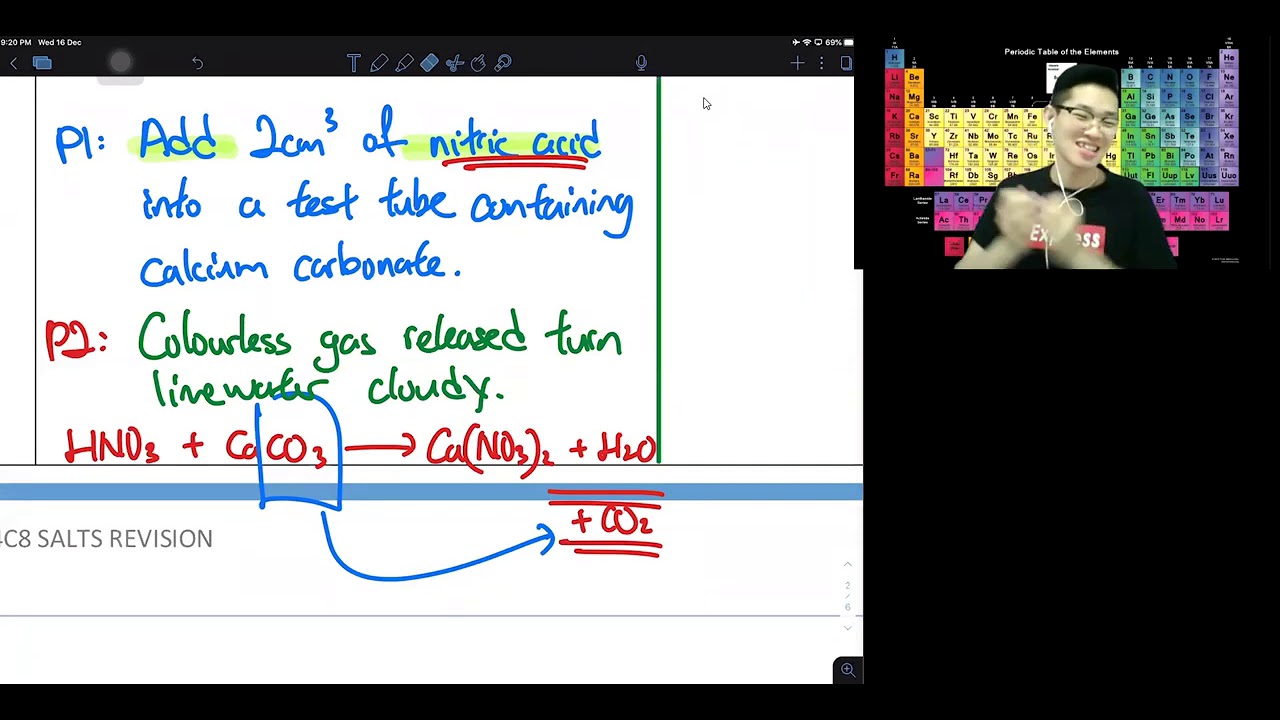 9:20 PM Wed 16 Dec
69%
P1: Add 2cm³ of nitric acid
into a test tube containing
calcium carbonate.
P2: Colourless gas released turn
limewater cloudy.
HNO₃ + CaCO₃ → Ca(NO₃)₂ + H₂O
+ CO₂
4C8 SALTS REVISION
2
/
6
Periodic Table of the Elements
H He
Li Be B C N O F Ne
Na Mg Al Si P S Cl Ar
K Ca Sc Ti V Cr Mn Fe Ga Ge As Se Br Kr
Rb Sr Y Zr Nb Mo Tc Ru In Sn Sb Te I Xe
Cs Ba Hf Ta W Re Os Tl Pb Bi Po At Rn
Fr Ra Rf Db Sg Bh Hs Uut Fl Uup Lv Uus Uuo
La Ce Er Tm Yb Lu
Ac Th Md No Lr